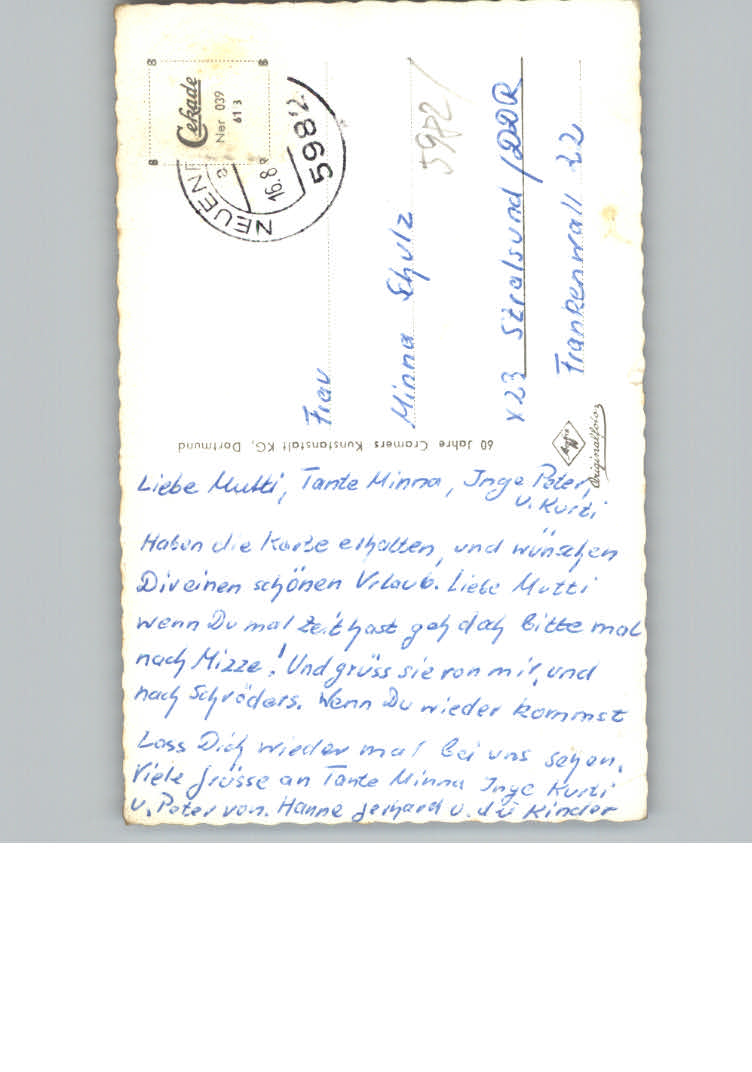 Cekade
Ner 039
61 3
NEUEN
16.8
5982
5982
Frau
Minna Schulz
X23 Stralsund / DDR
Frankenwall 22
60 Jahre Cramers Kunstanstalt KG, Dortmund
Agfa
Originalfoto
Liebe Mutti, Tante Minna, Inge Peter,
u. Kurti
Haben die Karte erhalten, und wünschen
Dir einen schönen Urlaub. Liebe Mutti
wenn Du mal Zeit hast geh doch bitte mal
nach Mizze! Und grüss sie von mir, und
nach Schröders. Wenn Du wieder kommst
Lass Dich wieder mal bei uns sehen.
Viele Grüsse an Tante Minna Inge Kurti
u. Peter von. Hanne Gerhard u. die Kinder